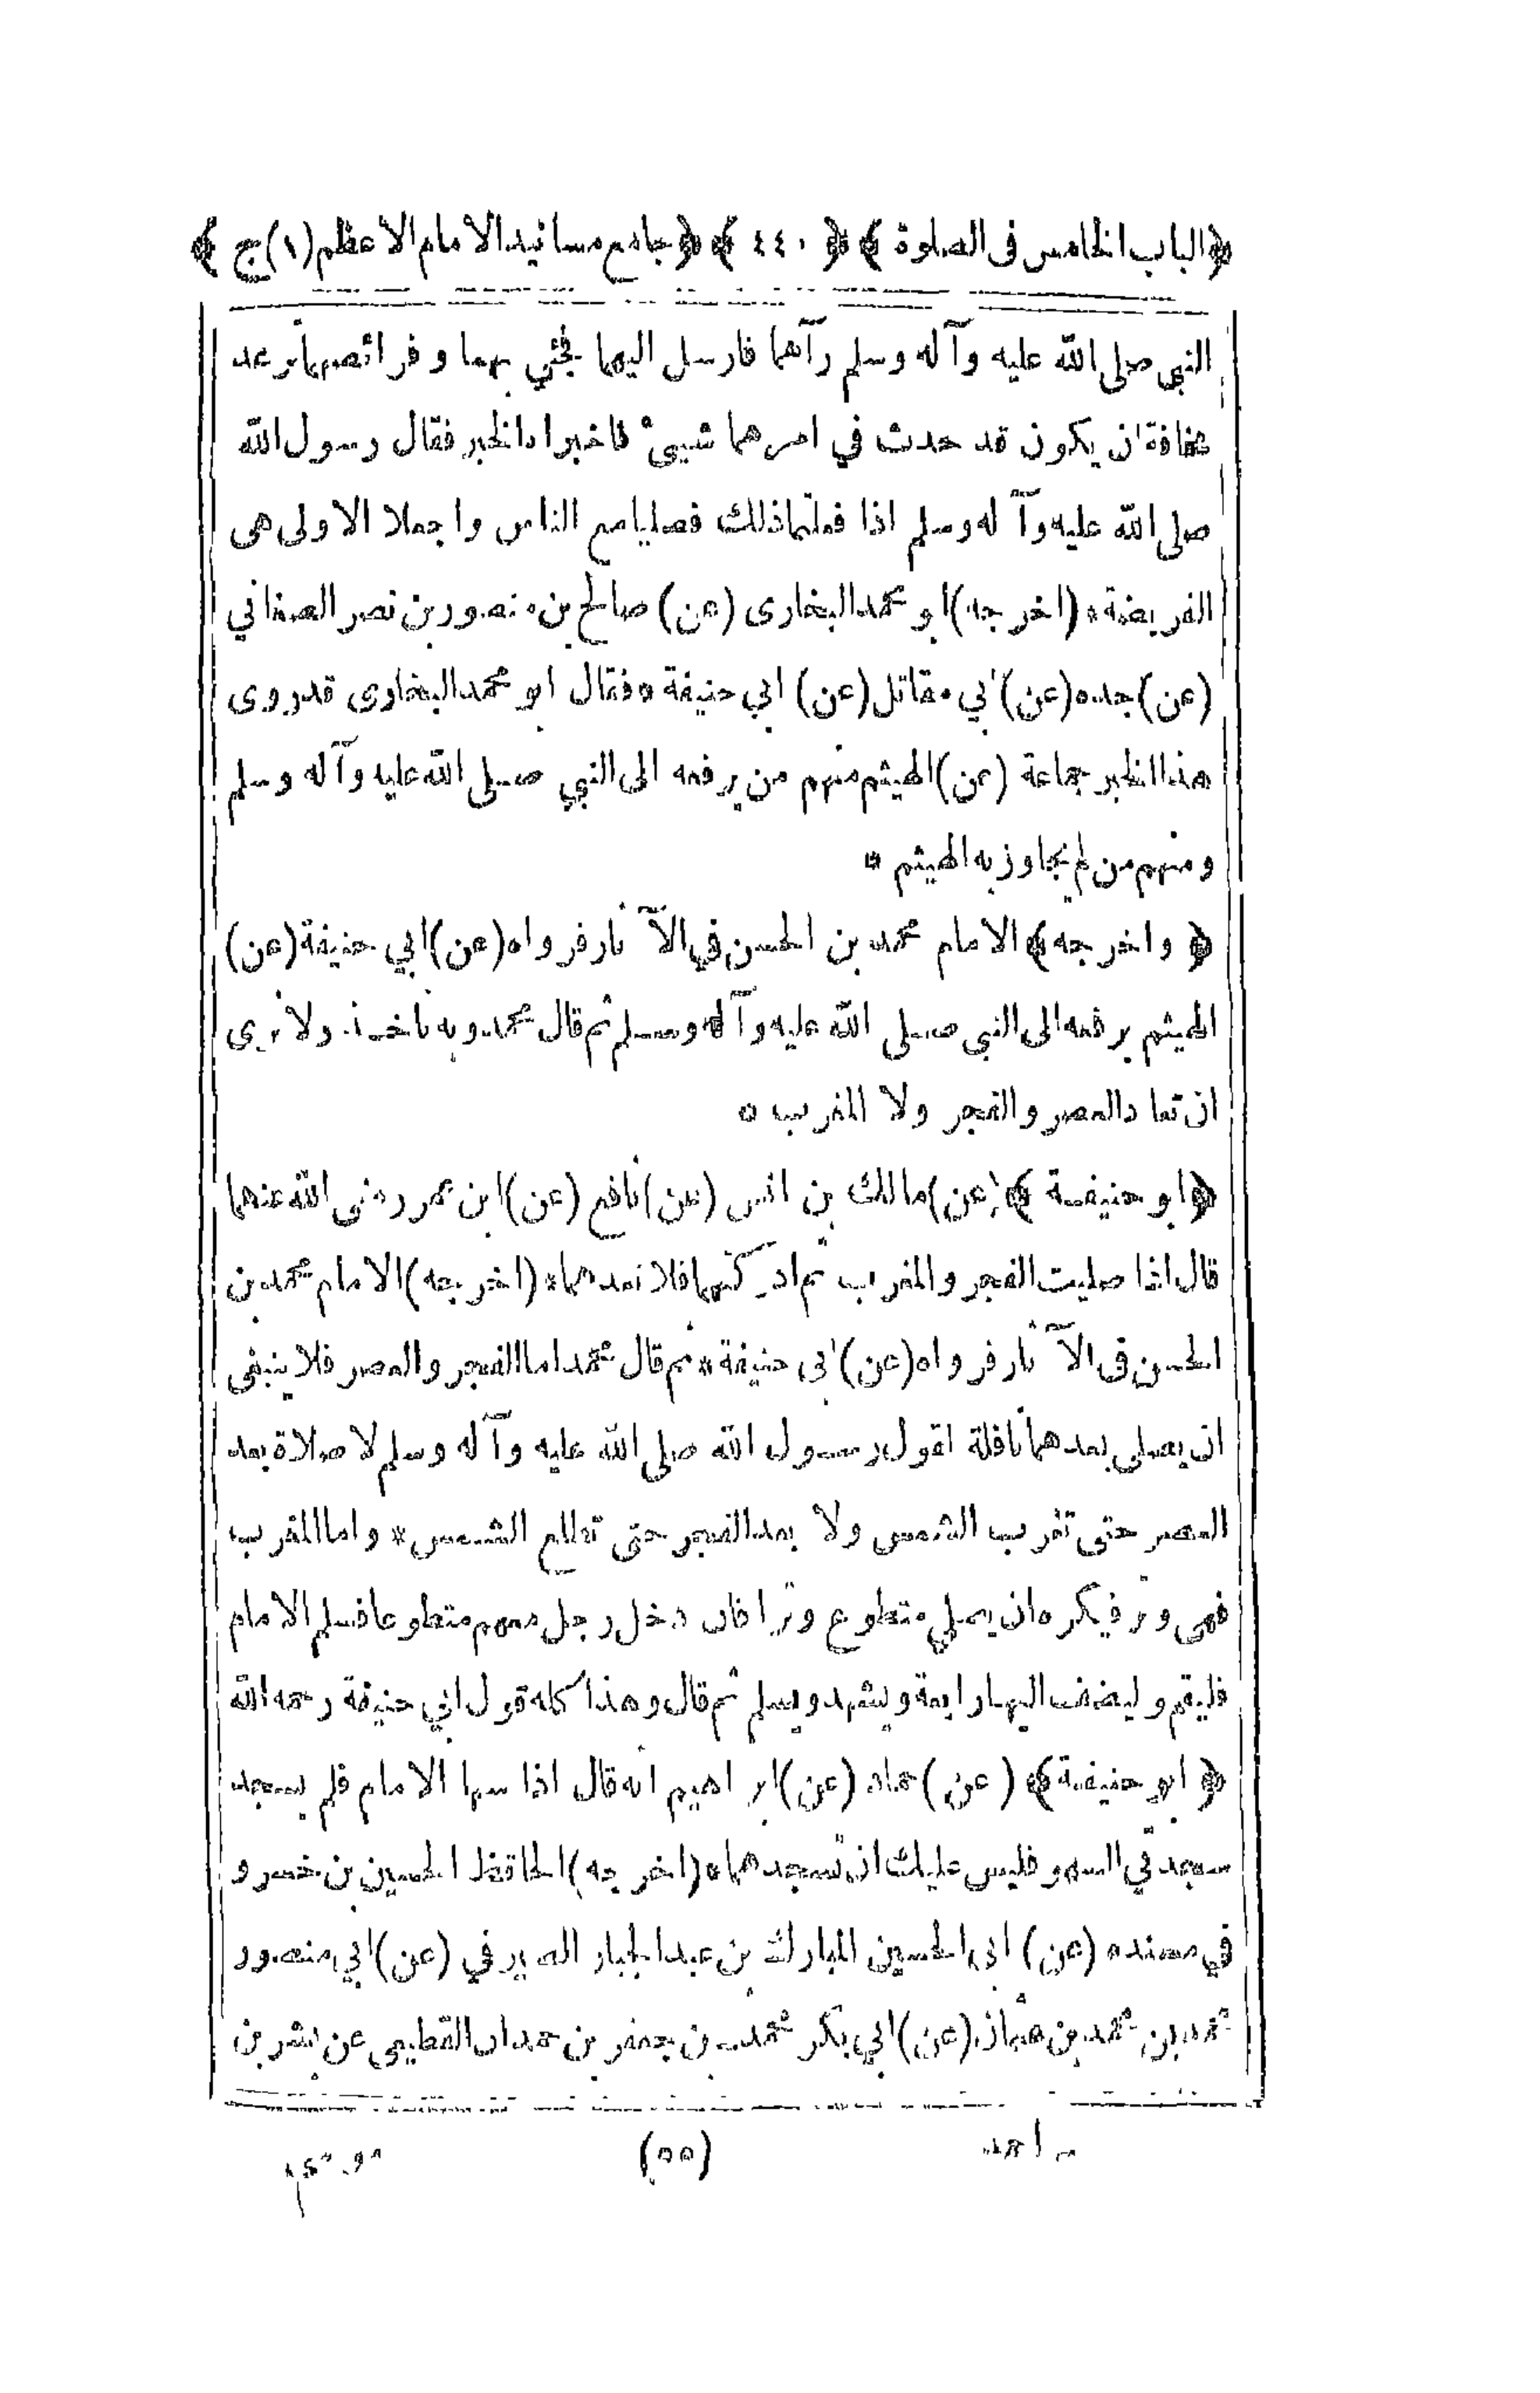 ﴿الباب الخامس فى الصلوة﴾ ﴿٤٤٠﴾ ﴿جامع مسانيد الامام الاعظم(١)ج﴾
النبي صلى الله عليه وآله وسلم رآهما فارسل اليهما فجئي بهما و فرائصهما ترعد
مخافة ان يكون قد حدث في امرهما شيئ فاخبراه الخبر فقال رسول الله
صلى الله عليه وآله وسلم اذا فعلتما ذلك فصليا مع الناس واجعلا الاولى هى
الفريضة * (اخرجه) ابو محمد البخارى (عن) صالح بن منصور بن نصر الصغاني
(عن) جده (عن) ابي مقاتل (عن) ابي حنيفة * فقال ابو محمد البخارى قد روى
هذا الخبر جماعة (عن) الهيثم منهم من يرفعه الى النبي صلى الله عليه وآله وسلم
ومنهم من لم يجاوز به الهيثم *
﴿واخرجه﴾ الامام محمد بن الحسن في الآثار فرواه (عن) ابي حنيفة (عن)
الهيثم يرفعه الى النبي صلى الله عليه وآله وسلم ثم قال محمد وبه نأخذ ولا نرى
ان تعاد العصر والفجر ولا المغرب *
﴿ابو حنيفة﴾ (عن) مالك بن انس (عن) نافع (عن) ابن عمر رضى الله عنهما
قال اذا صليت الفجر والمغرب ثم ادركتهما فلا تعدهما * (اخرجه) الامام محمد بن
الحسن فى الآثار فرواه (عن) ابى حنيفة * ثم قال محمد اما الفجر والعصر فلا ينبغى
ان يصلى بعدهما نافلة لقول رسول الله صلى الله عليه وآله وسلم لا صلاة بعد
العصر حتى تغرب الشمس ولا بعد الفجر حتى تطلع الشمس * واما المغرب
فهى وتر فيكره ان يصلي متطوع وترا فان دخل رجل معهم متطوعا فسلم الامام
فليقم وليضف اليها رابعة ويتشهد ويسلم ثم قال وهذا كله قول ابي حنيفة رحمه الله
﴿ابو حنيفة﴾ (عن) حماد (عن) ابراهيم انه قال اذا سها الامام فلم يسجد
سجدتي السهو فليس عليك ان تسجدهما * (اخرجه) الحافظ الحسين بن خسرو
في مسنده (عن) ابى الحسين المبارك بن عبد الجبار الصيرفي (عن) ابي منصور
محمد بن محمد بن عثمان (عن) ابي بكر محمد بن جعفر بن حمدان القطيعى عن بشر بن
(٥٥)